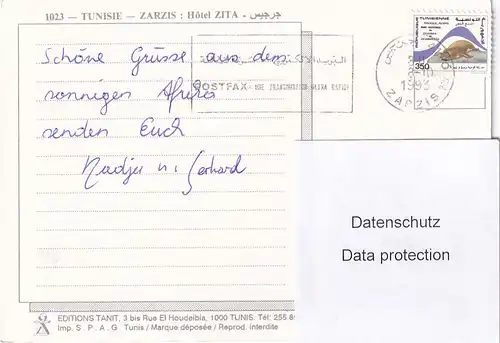 1023 - TUNISIE - ZARZIS : Hôtel ZITA - جرجيس
Schöne Grüsse aus dem
sonnigen Afrika
senden Euch
Nadja u. Gerhard
POSTFAX
TUNISIENNE
350
1993
ZARZIS
Datenschutz
Data protection
EDITIONS TANIT, 3 bis Rue El Houdeibia, 1000 TUNIS. Tél: 255.8
Imp. S . P . A . G Tunis / Marque déposée / Reprod. interdite